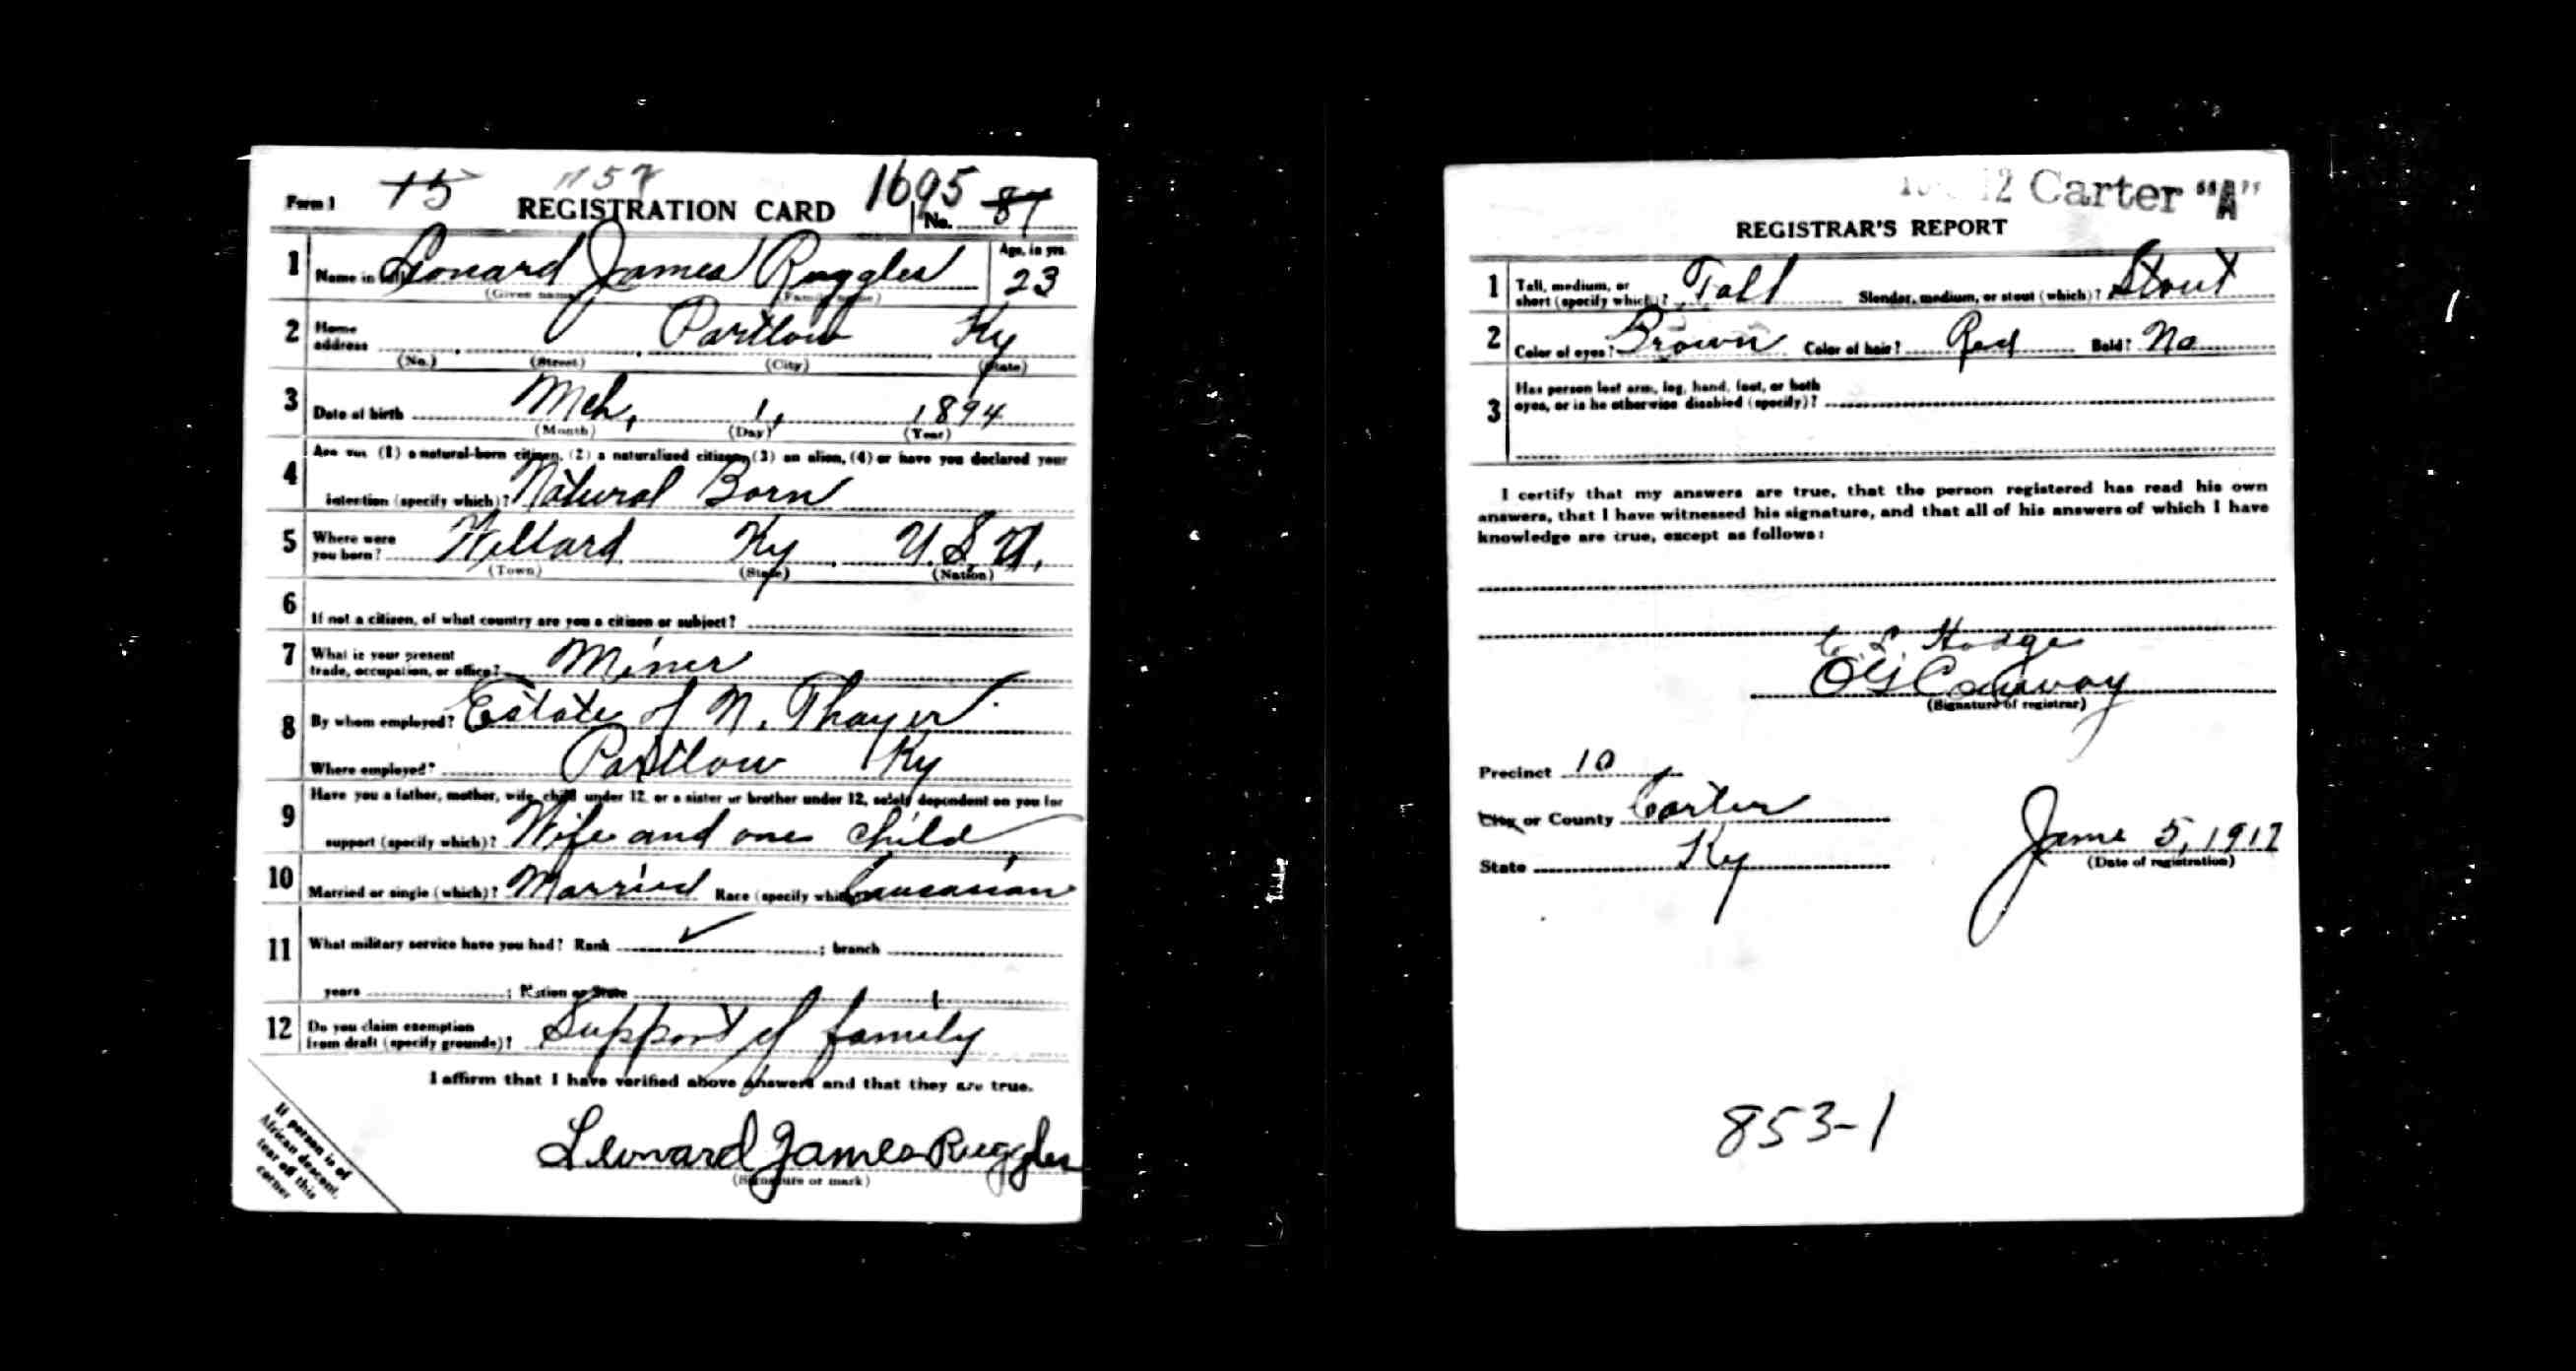 Form 1 15 REGISTRATION CARD 1695 No. 87
1 Name in full Leonard James Ruggles Age, in yrs. 23
(Given name) (Family name)
2 Home address Partlow Ky
(No.) (Street) (City) (State)
3 Date of birth Mch, 1, 1894
(Month) (Day) (Year)
4 Are you (1) a natural-born citizen, (2) a naturalized citizen, (3) an alien, (4) or have you declared your
intention (specify which)? Natural Born
5 Where were you born? Willard Ky U.S.A.
(Town) (State) (Nation)
6 If not a citizen, of what country are you a citizen or subject?
7 What is your present
trade, occupation, or office? Miner
8 By whom employed? Estate of N. Thayer
Where employed? Partlow Ky
9 Have you a father, mother, wife, child under 12, or a sister or brother under 12, solely dependent on you for
support (specify which)? Wife and one child
10 Married or single (which)? Married Race (specify which)? Caucasian
11 What military service have you had? Rank ; branch
years ; Nation or State
12 Do you claim exemption
from draft (specify grounds)? Support of family
I affirm that I have verified above answers and that they are true.
Leonard James Ruggles
(Signature or mark)
If person is of
African descent,
tear off this
corner
12 Carter "A"
REGISTRAR'S REPORT
1 Tall, medium, or
short (specify which)? Tall Slender, medium, or stout (which)? Stout
2 Color of eyes? Brown Color of hair? Red Bald? No
3 Has person lost arm, leg, hand, foot, or both
eyes, or is he otherwise disabled (specify)?
I certify that my answers are true, that the person registered has read his own
answers, that I have witnessed his signature, and that all of his answers of which I have
knowledge are true, except as follows:
C. L. Hodge
O G Conway
(Signature of registrar)
Precinct 10
City or County Carter
State Ky
June 5, 1917
(Date of registration)
853-1